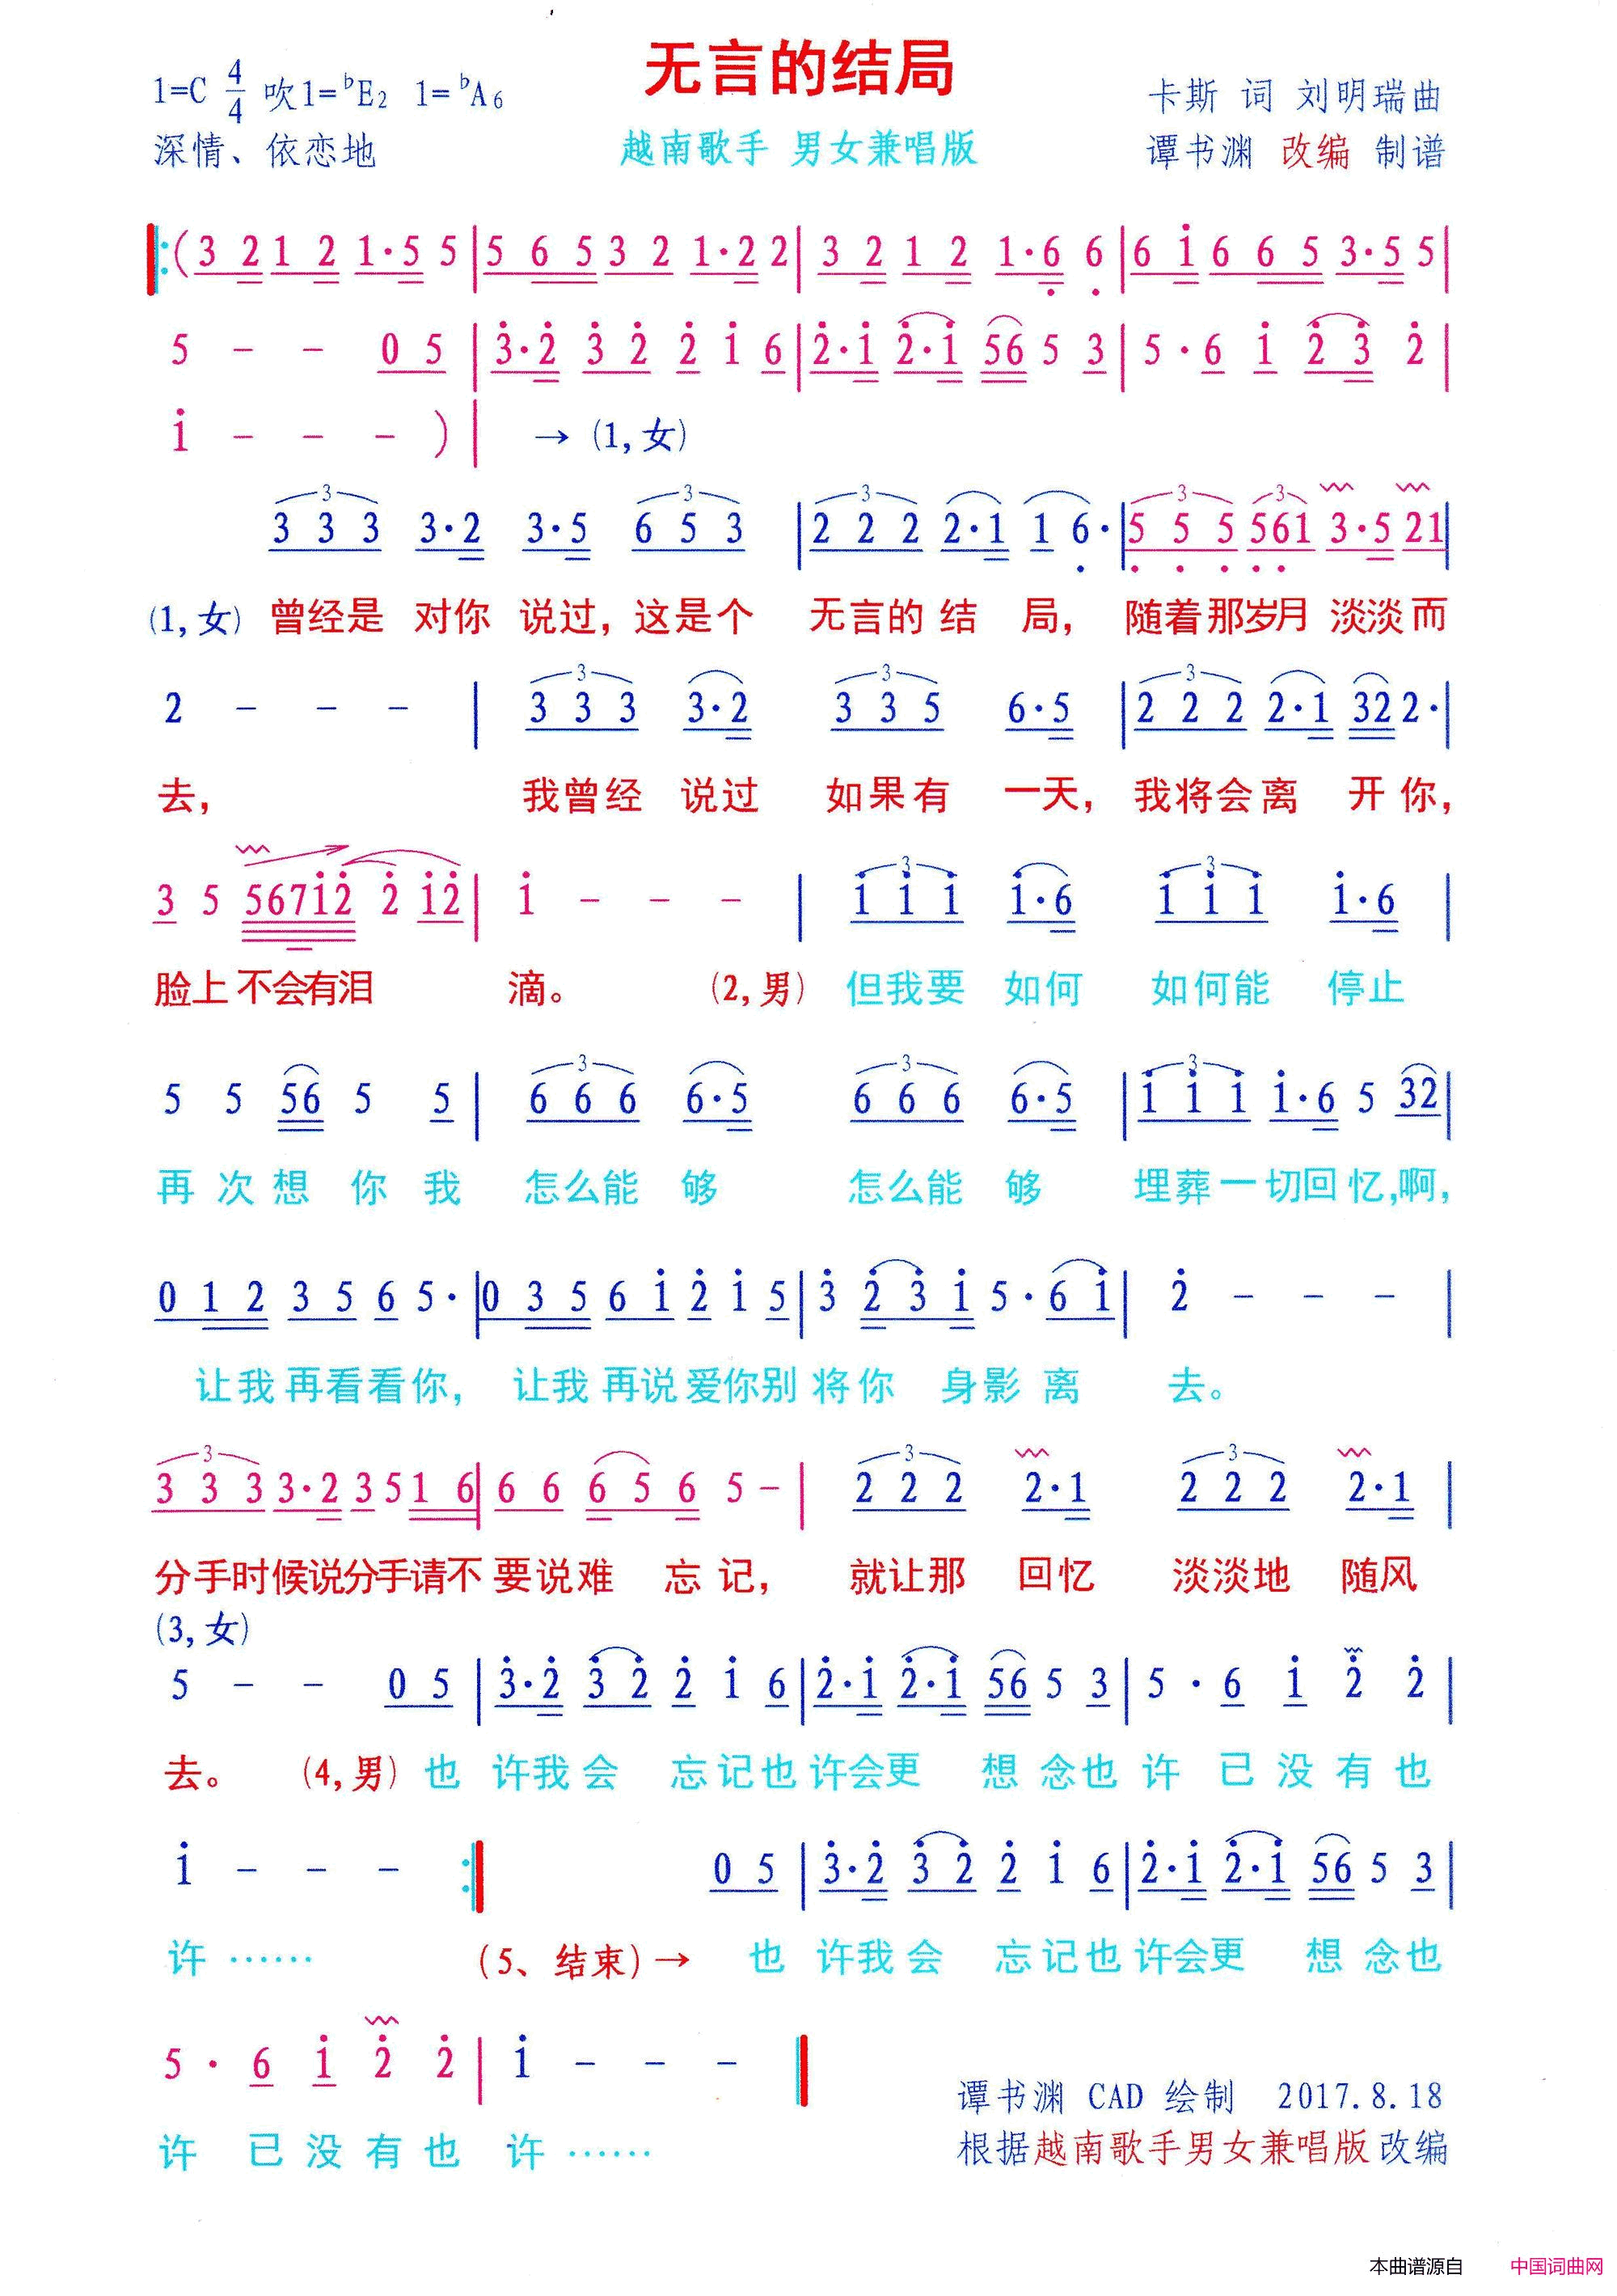 无言的结局
1=C 4/4 吹1=♭E2 1=♭A6
卡斯 词 刘明瑞曲
深情、依恋地
越南歌手 男女兼唱版
谭书渊 改编 制谱
‖:(3 2 1 2 1·5 5 | 5 6 5 3 2 1·2 2 | 3 2 1 2 1·6̣ 6̣ | 6 i 6 6 5 3·5 5 |
5 – – 0 5 | 3̇·2̇ 3̇ 2̇ 2̇ i 6 | 2̇·i 2̇·i 56 5 3 | 5·6 i 2̇ 3̇ 2̇ |
i – – – ) | → (1,女)
3 3 3 3·2 3·5 6 5 3 | 2 2 2 2·1 1 6̣· | 5̣ 5̣ 5̣ 5̣6̣1 3·5 21 |
(1,女) 曾经是 对你 说过,这是个 无言的 结 局, 随着那岁月 淡淡而
2 – – – | 3 3 3 3·2 3 3 5 6·5 | 2 2 2 2·1 32 2· |
去, 我曾经 说过 如果有 一天, 我将会离 开你,
3 5 567i2̇ 2̇ i2̇ | i – – – | i i i i·6 i i i i·6 |
脸上 不会有泪 滴。 (2,男) 但我要 如何 如何能 停止
5 5 56 5 5 | 6 6 6 6·5 6 6 6 6·5 | i i i i·6 5 32 |
再 次 想 你 我 怎么能 够 怎么能 够 埋葬一切回忆,啊,
0 1 2 3 5 6 5· | 0 3 5 6 i 2̇ i 5 | 3̇ 2̇ 3̇ i 5·6 i | 2̇ – – – |
让我再看看你, 让我再说爱你别 将你 身影 离 去。
3 3 3 3·2 3 5 1 6 | 6 6 6 5 6 5 – | 2 2 2 2·1 2 2 2 2·1 |
分手时候说分手请不 要说难 忘 记, 就让那 回忆 淡淡地 随风
(3,女)
5 – – 0 5 | 3̇·2̇ 3̇ 2̇ 2̇ i 6 | 2̇·i 2̇·i 56 5 3 | 5·6 i 2̇ 2̇ |
去。 (4,男) 也 许我会 忘记也 许会更 想 念也 许 已没有也
i – – – :‖ 0 5 | 3̇·2̇ 3̇ 2̇ 2̇ i 6 | 2̇·i 2̇·i 56 5 3 |
许 …… (5、结束)→ 也 许我会 忘记也 许会更 想 念也
5·6 i 2̇ 2̇ | i – – – ‖
许 已没有也 许 ……
谭书渊 CAD 绘制 2017.8.18
根据越南歌手男女兼唱版改编
本曲谱源自 中国词曲网